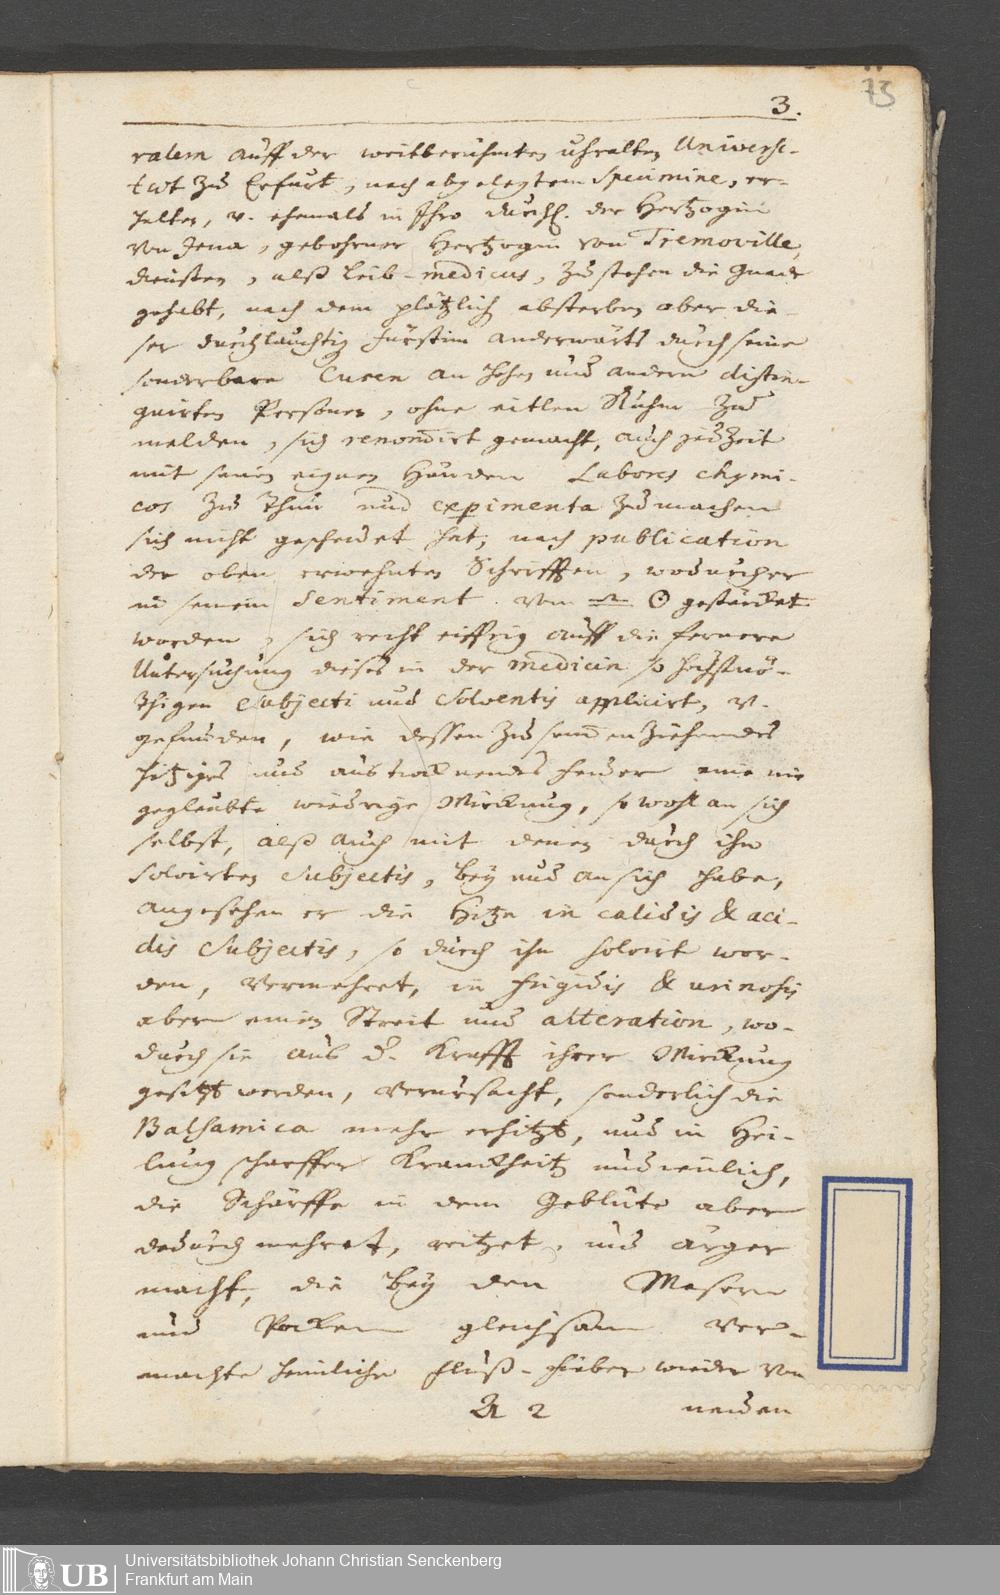 73
3.
ralem auff der weitberühmten uhralten Universi-
tæt zu Erfurt, nach abgelegtem Specimine, er-
halten, v. ehemals in Ihro Durchl. der Hertzogin
von Jena, gebohrner Hertzogin von Tremoville,
diensten, alß Leib-medicus, zu stehen die Gnade
gehabt, nach dem plötzlich absterben aber die-
ser durchlauchtig fürstin anderwärts durch seine
sonderbare Curen an hohen und andern distin-
guirten Personen, ohne eitlen Ruhm zu
melden, sich renom̄irt gemacht, auch jedzeit
mit seinen eignen Händen Labores chymi-
cos zu thun und experimenta zu machen
sich nicht gescheuet hat; nach publication
der oben erwehnten Schrifften, wodurch er
in seinem Sentiment vom 🜔 ☉ gestärcket
worden, sich recht eiffrig auff die fernere
Untersuchung dieses in der medicin so höchstnö-
thigen Subjecti und Solventis applicirt, v.
gefunden, wie dessen zusam̄enziehendes
hitziges und austrocknendes feuer eine nie
geglaubte wiedrige Wirckung, so wohl an sich
selbst, alß auch mit denen durch ihn
solvirten Subjectis, bey und an sich habe,
angesehen er die Hitze in calidis & aci-
dis Subjectis, so durch ihn solvirt wor-
den, vermehret, in frigidis & urinosis
aber einen Streit und alteration, wo-
durch sie aus d. Krafft ihrer Wirckung
gesetzt werden, verursacht, sonderlich die
Balsamica mehr erhitzt, und in Hei-
lung scharffer Kranckheit undienlich,
die Schärffe in dem Geblüte aber
dadurch mehret, reitzet, und ärger
macht, die bey den Masern
und Pocken gleichsam ver-
machte heimliche Fluß-fieber wieder von
A 2 neuen
UB
Universitätsbibliothek Johann Christian Senckenberg
Frankfurt am Main